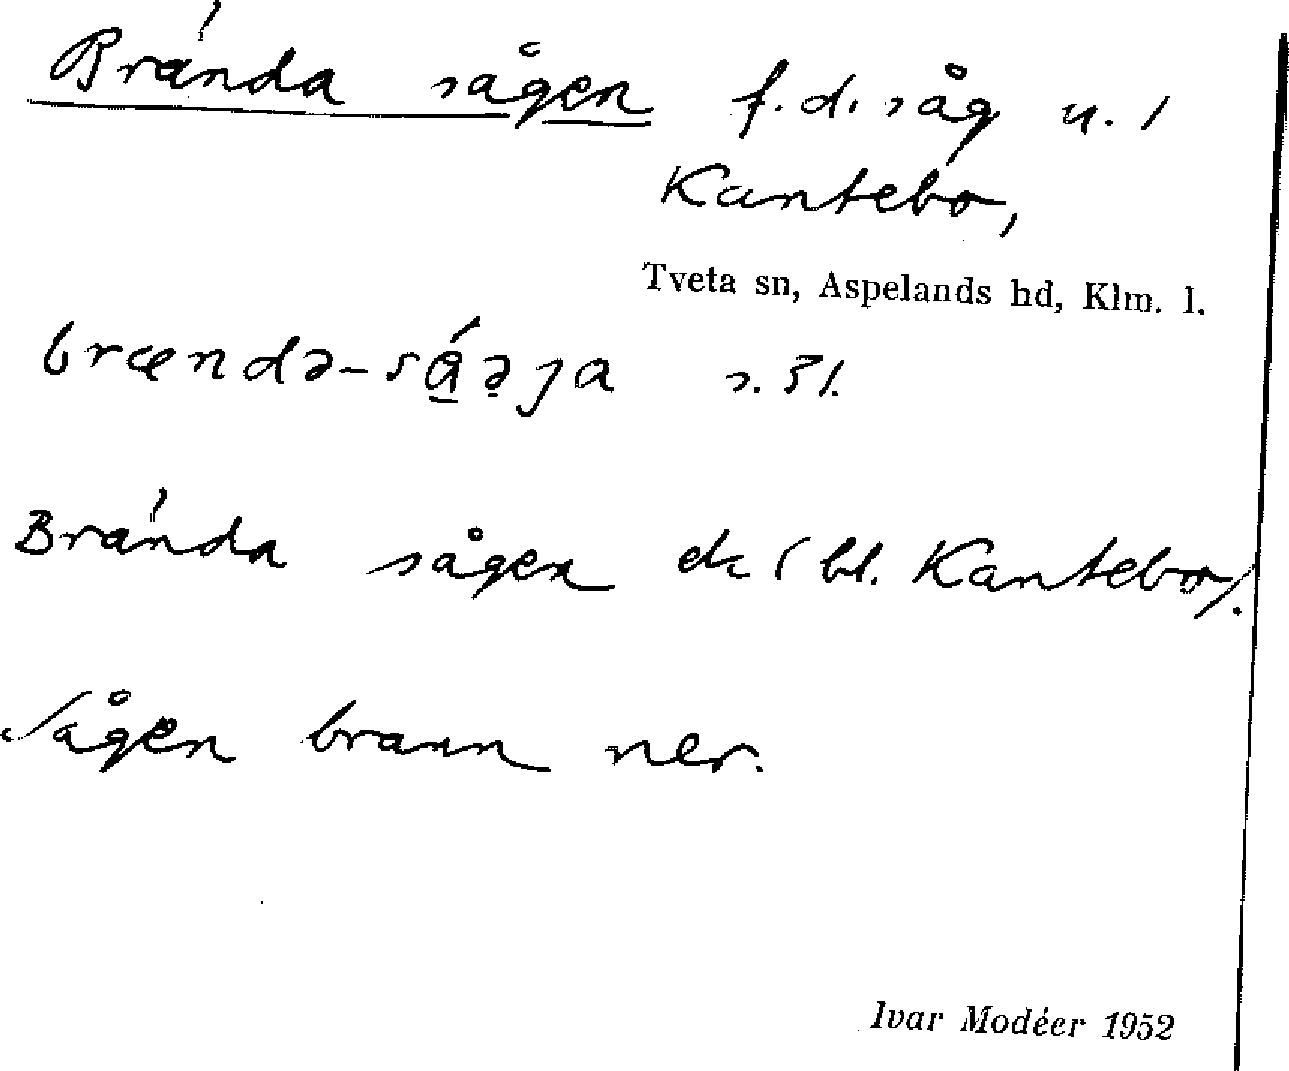 Brända sågen f.d. såg u. /
Kantebo,
Tveta sn, Aspelands hd, Klm. l.
brændə-sɑ́əja s. 31.
Brända sågen ek (bl. Kantebo).
Sågen brann ner.
Ivar Modéer 1952